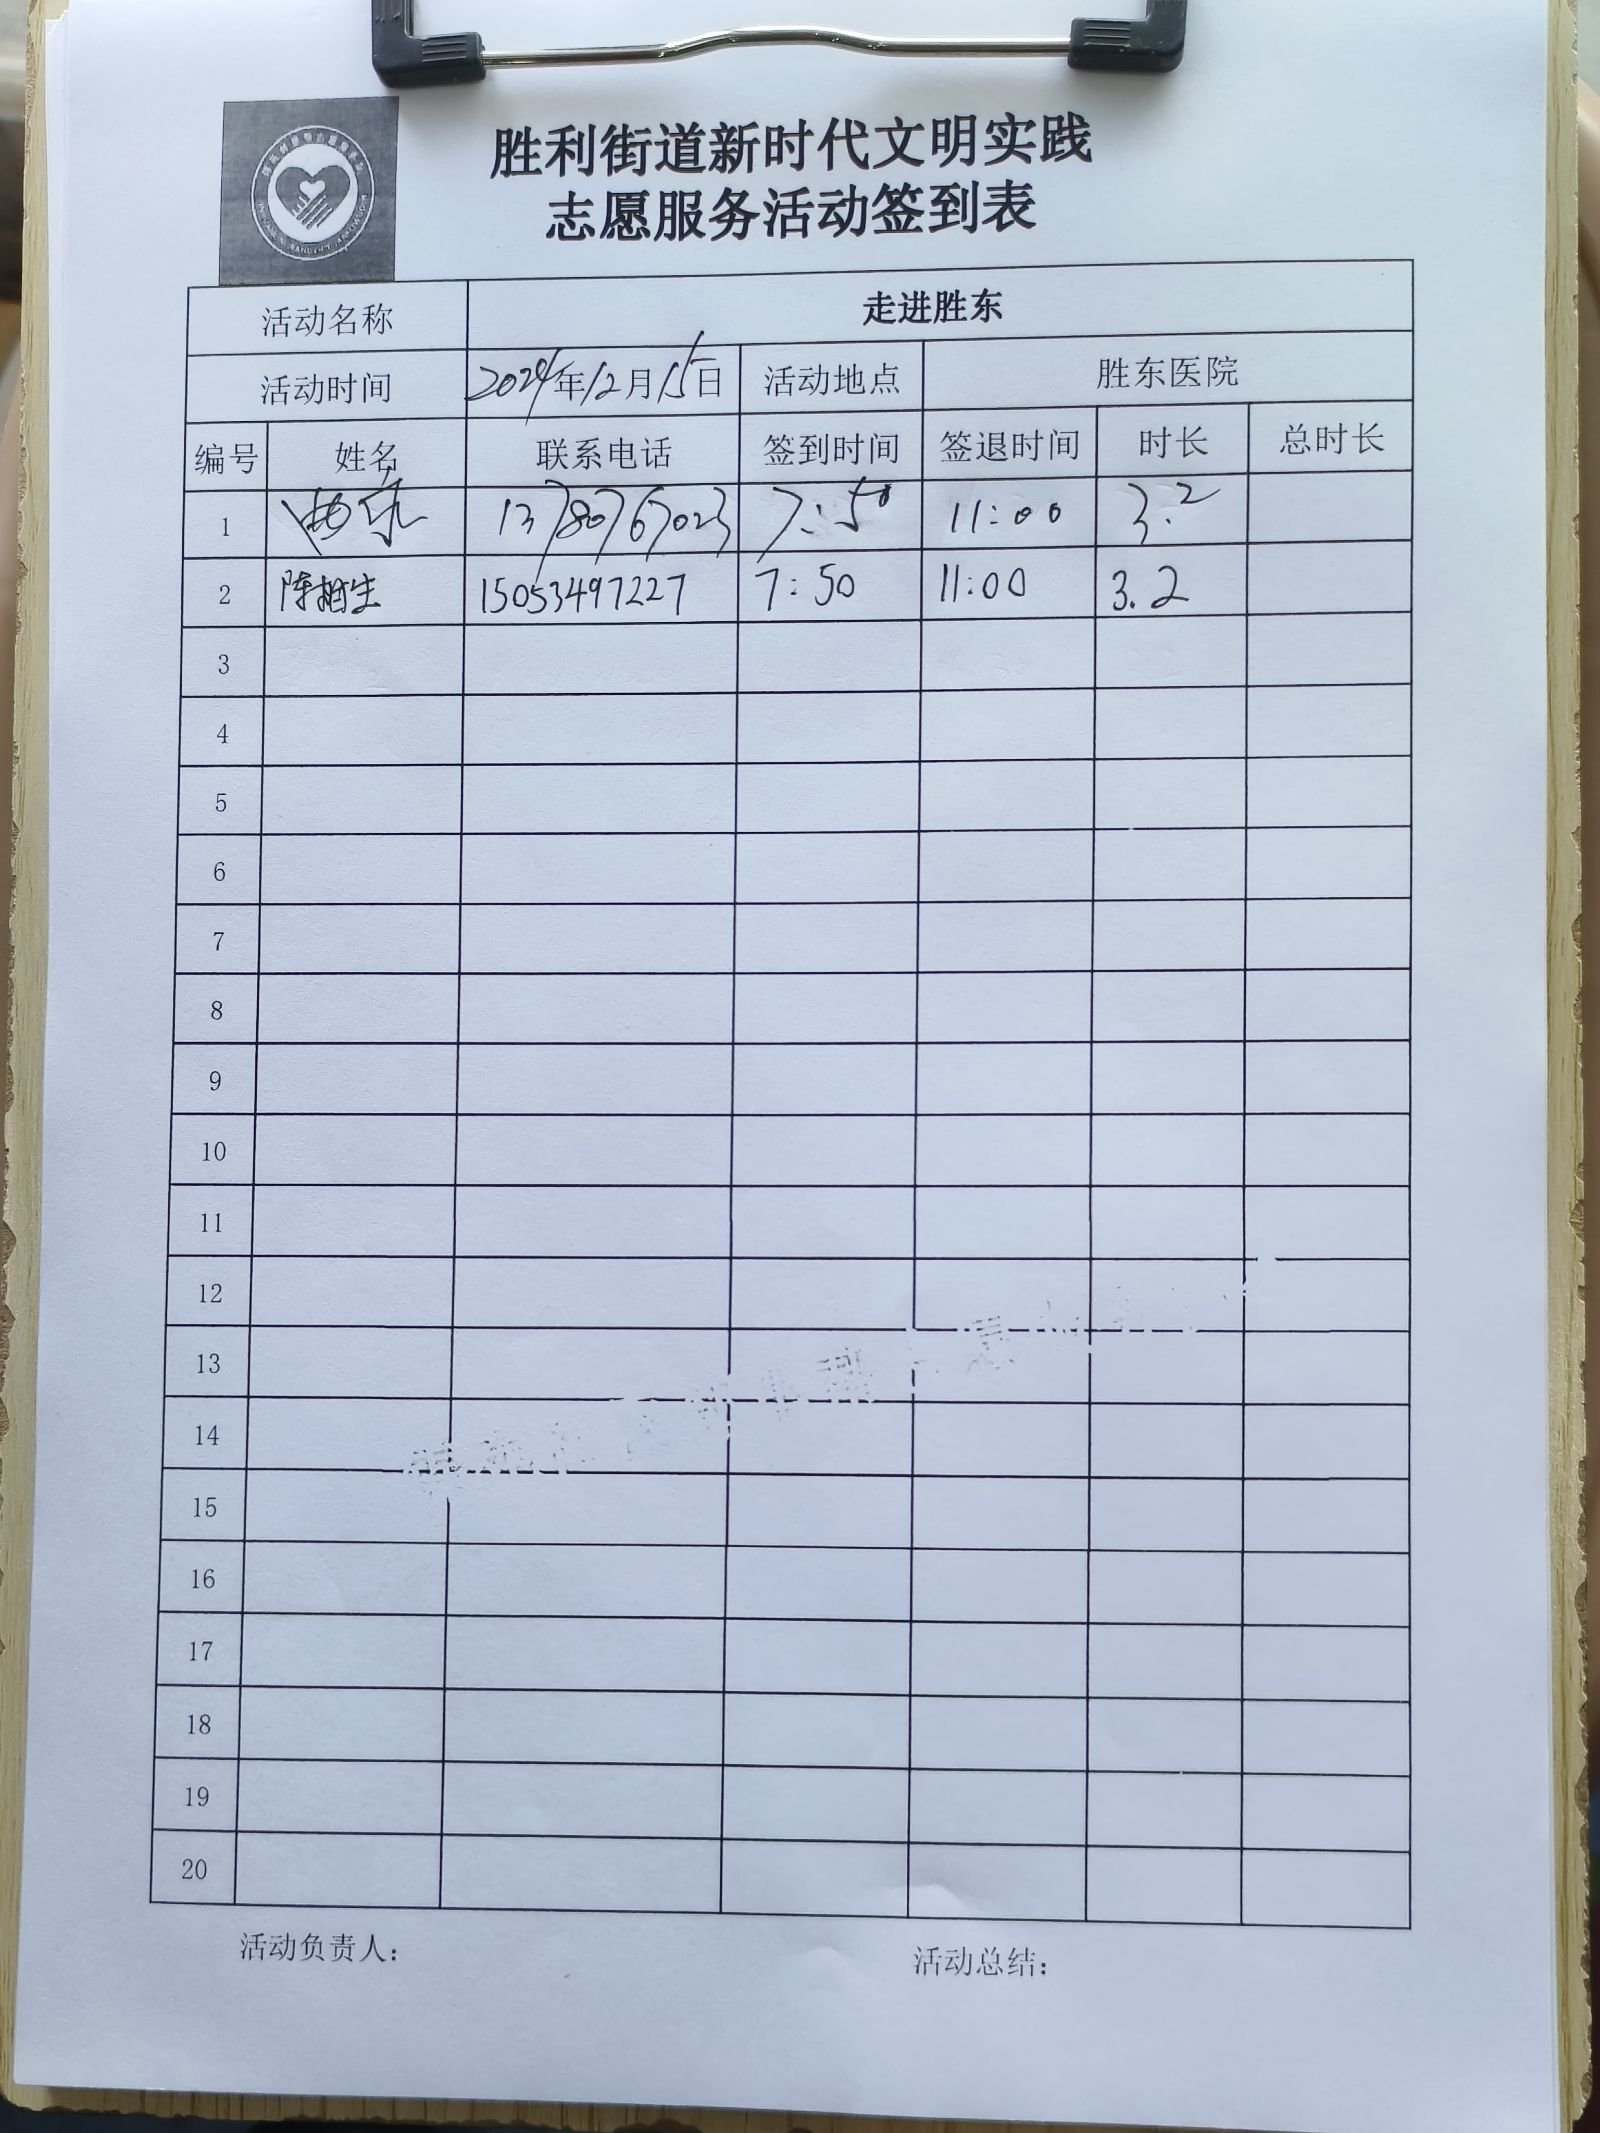 胜利街道新时代文明实践
志愿服务活动签到表
活动名称 走进胜东
活动时间 2024年12月15日 活动地点 胜东医院
编号 姓名 联系电话 签到时间 签退时间 时长 总时长
1 13780767023 7:50 11:00 3.2
2 陈相生 15053497227 7:50 11:00 3.2
3
4
5
6
7
8
9
10
11
12
13
14
15
16
17
18
19
20
活动负责人: 活动总结: